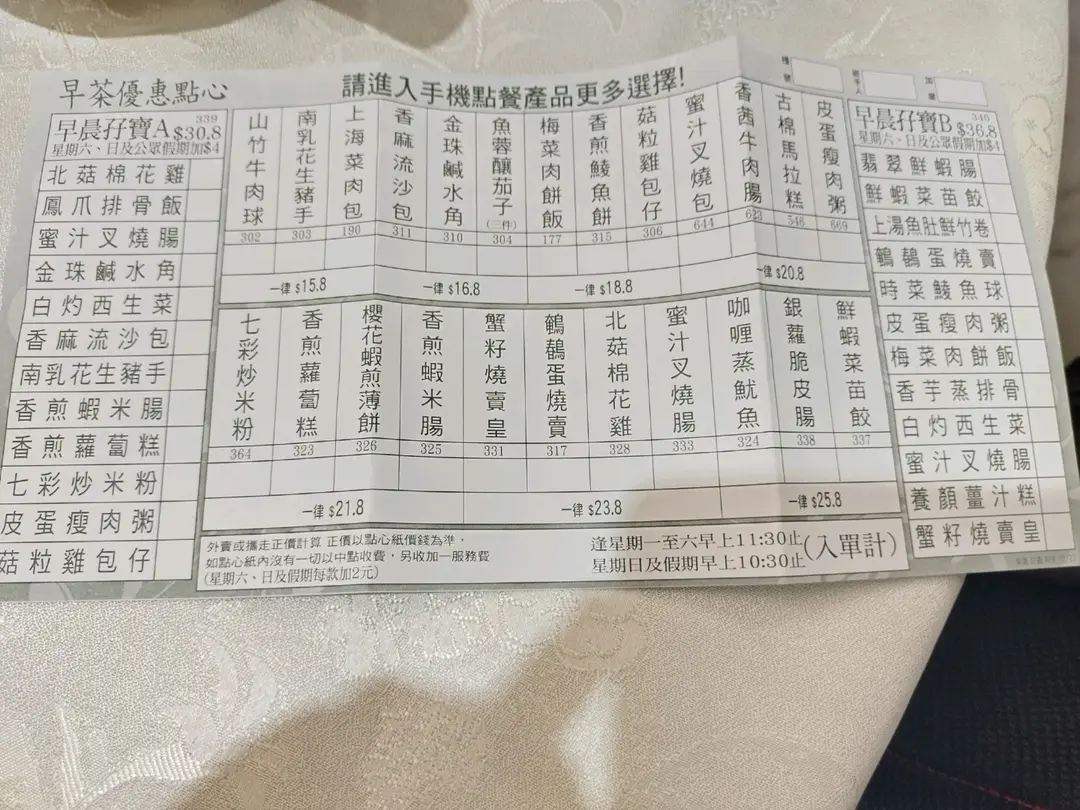 早茶優惠點心
請進入手機點餐產品更多選擇!
檯號
經手人
加單
早晨孖寶A
339
$30.8
星期六、日及公眾假期加$4
北菇棉花雞
鳳爪排骨飯
蜜汁叉燒腸
金珠鹹水角
白灼西生菜
香麻流沙包
南乳花生豬手
香煎蝦米腸
香煎蘿蔔糕
七彩炒米粉
皮蛋瘦肉粥
菇粒雞包仔
山竹牛肉球
302
南乳花生豬手
303
上海菜肉包
190
香麻流沙包
311
金珠鹹水角
310
魚蓉釀茄子(三件)
304
梅菜肉餅飯
177
香煎鯪魚餅
315
菇粒雞包仔
306
蜜汁叉燒包
644
香茜牛肉腸
623
古棉馬拉糕
546
皮蛋瘦肉粥
669
一律 $15.8
一律 $16.8
一律 $18.8
一律 $20.8
七彩炒米粉
364
香煎蘿蔔糕
323
櫻花蝦煎薄餅
326
香煎蝦米腸
325
蟹籽燒賣皇
331
鵪鵲蛋燒賣
317
北菇棉花雞
328
蜜汁叉燒腸
333
咖喱蒸魷魚
324
銀蘿脆皮腸
338
鮮蝦菜苗餃
337
一律 $21.8
一律 $23.8
一律 $25.8
外賣或攜走正價計算 正價以點心紙價錢為準,
如點心紙內沒有一切以中點收費, 另收加一服務費
(星期六、日及假期每款加2元)
逢星期一至六早上11:30止
星期日及假期早上10:30止
(入單計)
早晨孖寶B
340
$36.8
星期六、日及公眾假期加$4
翡翠鮮蝦腸
鮮蝦菜苗餃
上湯魚肚鮮竹卷
鵪鵲蛋燒賣
時菜鯪魚球
皮蛋瘦肉粥
梅菜肉餅飯
香芋蒸排骨
白灼西生菜
蜜汁叉燒腸
養顏薑汁糕
蟹籽燒賣皇